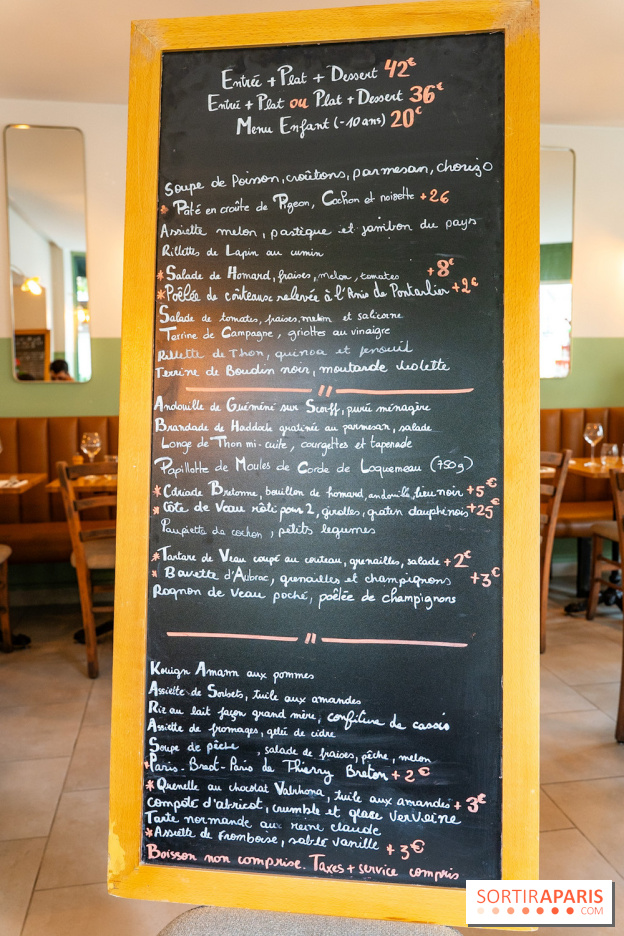 Entrée + Plat + Dessert 42€
Entrée + Plat ou Plat + Dessert 36€
Menu Enfant (-10 ans) 20€
Soupe de Poisson, croûtons, parmesan, chorizo
* Pâté en croûte de Pigeon, Cochon et noisette +2€
Assiette melon, pastèque et jambon du pays
Rillettes de Lapin au cumin
* Salade de Homard, fraises, melon, tomates +8€
* Poêlée de couteaux relevée à l'Anis de Pontarlier +2€
Salade de tomates, fraises, melon et salicorne
Terrine de Campagne, griottes au vinaigre
Rillette de Thon, quinoa et fenouil
Terrine de Boudin noir, moutarde violette
Andouille de Guéméné sur Scorff, purée ménagère
Brandade de Haddock gratinée au parmesan, salade
Longe de Thon mi-cuite, courgettes et tapenade
Papillotte de Moules de Corde de Loquemeau (750g)
* Cotriade Bretonne, bouillon de homard, andouille, lieu noir +5€
* Côte de Veau rôti pour 2, girolles, gratin dauphinois +25€
Paupiette de cochon, petits legumes
* Tartare de Veau coupé au couteau, grenailles, salade +2€
* Bavette d'Aubrac, grenailles et champignons +3€
Rognon de Veau poché, poêlée de champignons
Kouign Amann aux pommes
Assiette de Sorbets, tuile aux amandes
Riz au lait façon grand mère, confiture de cassis
Assiette de fromages, gelée de cidre
Soupe de pêche , salade de fraises, pêche, melon
* Paris-Brest-Paris de Thierry Breton +2€
* Quenelle au chocolat Valrhona, tuile aux amandes +3€
Compote d'abricot, crumble et glace verveine
Tarte normande aux reine claude
* Assiette de framboise, sablé vanille +3€
Boisson non comprise. Taxes + service compris
SORTIRAPARIS
.COM